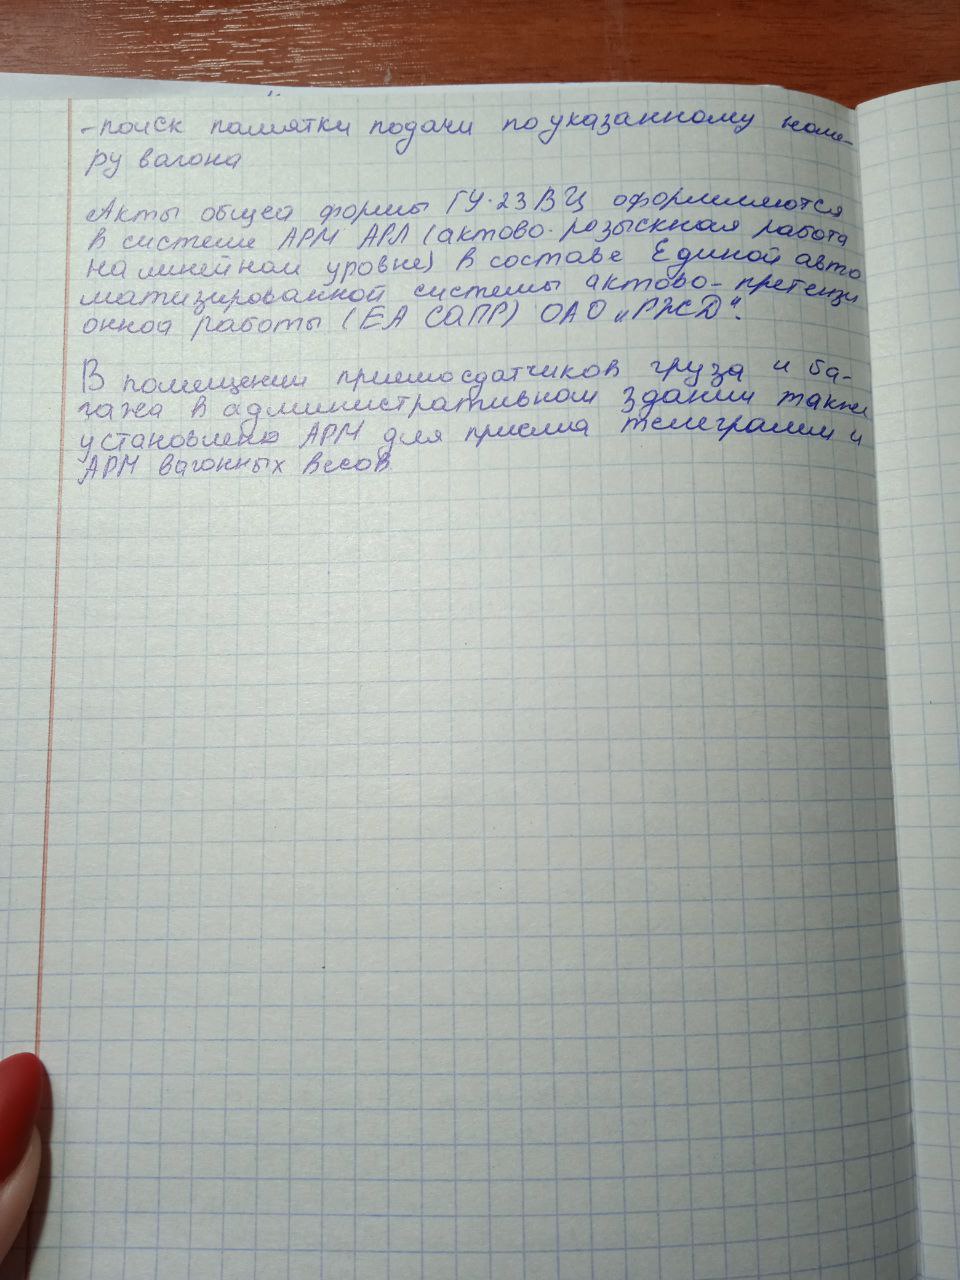 - поиск памятки подачи по указанному номе-
ру вагона
Акты общей формы ГУ-23 ВЦ оформляются
в системе АРМ АРЛ (актово-розыскная работа
на линейном уровне) в составе Единой авто
матизированной системы актово-претензи
онной работы (ЕА САПР) ОАО „РЖД".
В помещении приемосдатчиков груза и ба-
гажа в административном здании также
установлено АРМ для приема телеграмм и
АРМ вагонных весов